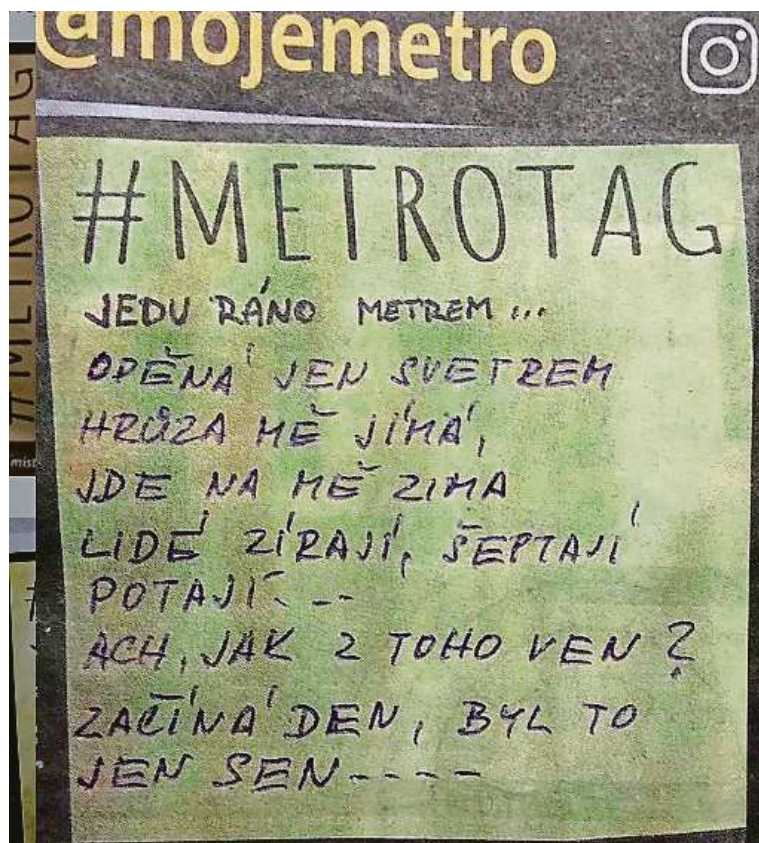 @mojemetro
#METROTAG
JEDU RÁNO METREM...
ODĚNÁ JEN SVETREM
HRŮZA MĚ JÍMÁ,
JDE NA MĚ ZIMA
LIDÉ ZÍRAJÍ, ŠEPTAJÍ
POTAJÍ---
ACH, JAK Z TOHO VEN?
ZAČÍNÁ DEN, BYL TO
JEN SEN----
#METROTAG
míst